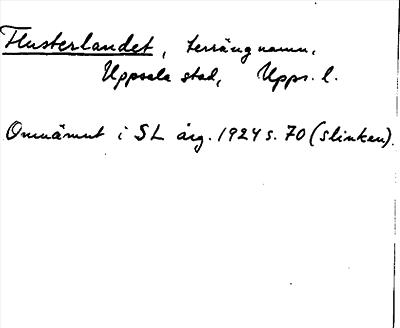 Flusterlandet, terrängnamn,
Uppsala stad, Upps. l.
Omnämnt i SL årg. 1924 s. 70 (slinkan).